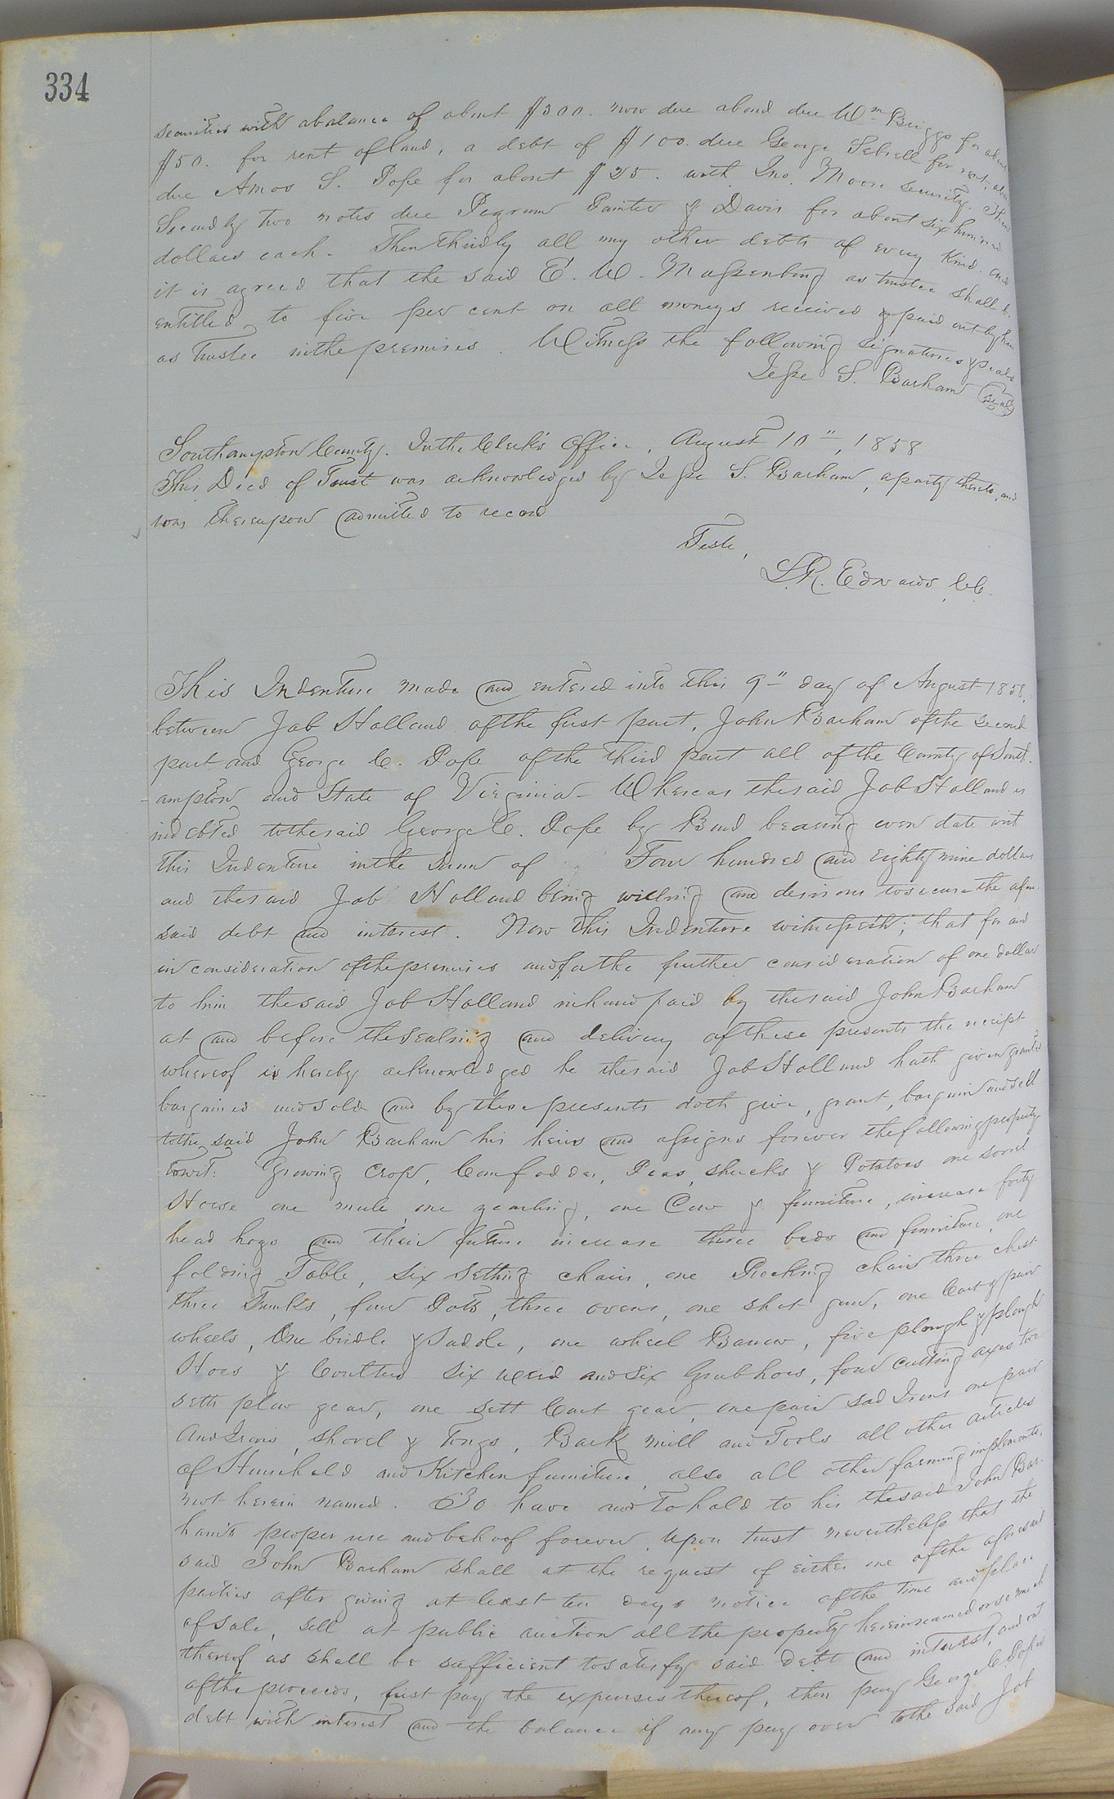 334
securities with abalance of about $300. now due about due Wm Briggs for about
$50. for rent of land, a debt of $100. due George Sebrell for rent, also
due Amos S. Pope for about $25. with Jno. Moore Security. Then
Secondly two notes due Pegram Painter & Davis for about six hundred
dollars each. Then thirdly all my other debts of every kind. and
it is agreed that the said E. W. Massenburg as trustee shall be
entitled to five per cent on all moneys received & paid out by him
as Trustee inthe premises. Witness the following signatures & seals
Jesse S. Barham (seal)
Southampton County. Inthe Clerk's Office, August 10", 1858
This Deed of Trust was acknowledged by Jesse S. Barham, a party thereto, and
was thereupon admitted to record
Teste,
L.R. Edwards, C.C.
This Indenture made and entered into this 9" day of August 1858,
between Job Holland of the first part, John Barham of the second
part and George C. Pope of the third part all of the County of South-
ampton and State of Virginia - Whereas the said Job Holland is
indebted to the said George C. Pope by Bond bearing even date with
this Indenture in the Sum of Four hundred and eighty nine dollars
and the said Job Holland being willing and desirous to secure the afore-
said debt and interest. Now this Indenture witnesseth; that for and
in consideration of the premises and for the further consideration of one dollar
to him the said Job Holland in hand paid by the said John Barham
at and before the sealing and delivery of these presents the receipt
whereof is hereby acknowledged he the said Job Holland hath given granted
bargained and sold and by these presents doth give, grant, bargain and sell
to the said John Barham his heirs and assigns forever the following property
towit: Growing crop, Corn fodder, Peas, shucks & Potatoes one sorrel
Horse one mule, one yearling, one Cow & furniture, increase forty
head hogs and their future increase three beds and furniture, one
folding Table, six setting chairs, one Rocking chair three chest
three Trunks, four Pots, three ovens, one shot gun, one Cart & pair
wheels, One bridle & Saddle, one wheel Barrow, five plough & plough
Hoes & Coulters six weed and six Grub hoes, four cutting axes two
setts plow gear, one sett Cart gear, one pair Sad Irons one pair
And Irons, shovel & Tongs, Bark mill and Tools all other articles
of Household and Kitchen furniture, also all other farming implements,
not herein named. To have and To hold to his the said John Bar-
ham's proper use and behoof forever. Upon trust nevertheless that the
said John Barham shall at the request of either one of the aforesaid
parties after giving at least ten days notice of the time and place
of sale, sell at public auction all the property herein named or so much
thereof as shall be sufficient to satisfy said debt and interest, and out
of the proceeds, first pay the expenses thereof, then pay George C. Pope's
debt with interest and the balance if any pay over to the said Job